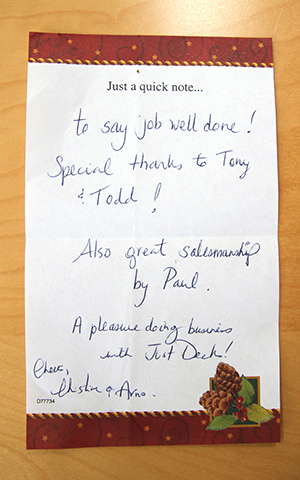 Just a quick note...
to say job well done!
Special thanks to Tony
& Todd!
Also great salesmanship
by Paul.
A pleasure doing business
with Just Deck!
Cheers,
& Arno.
D77734